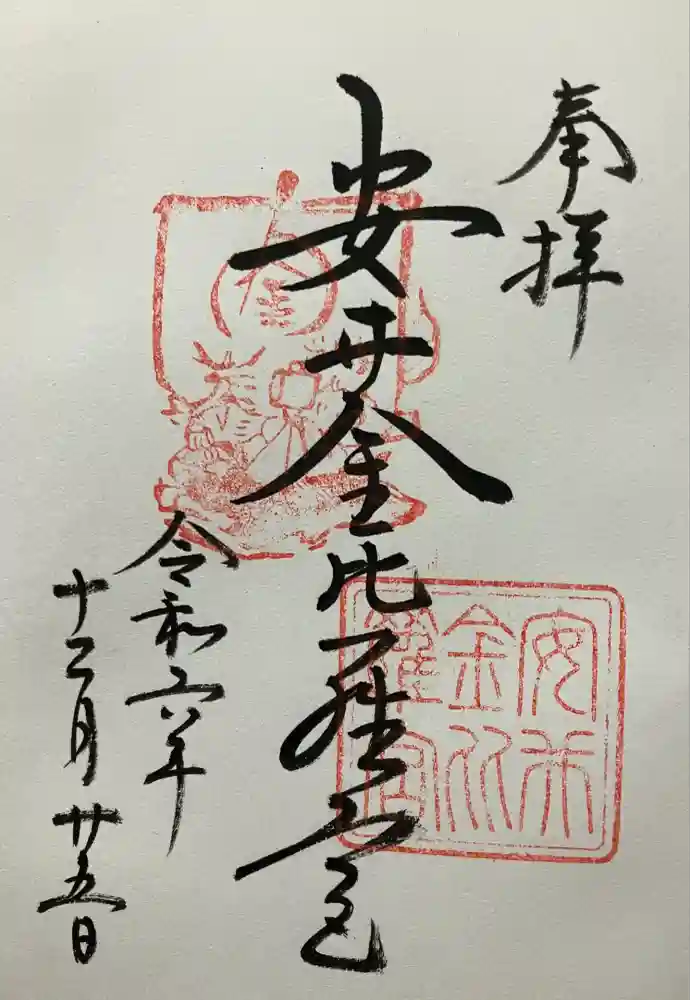 奉拝
安井金比羅宮
安井金比羅宮
令和六年
十二月廿五日